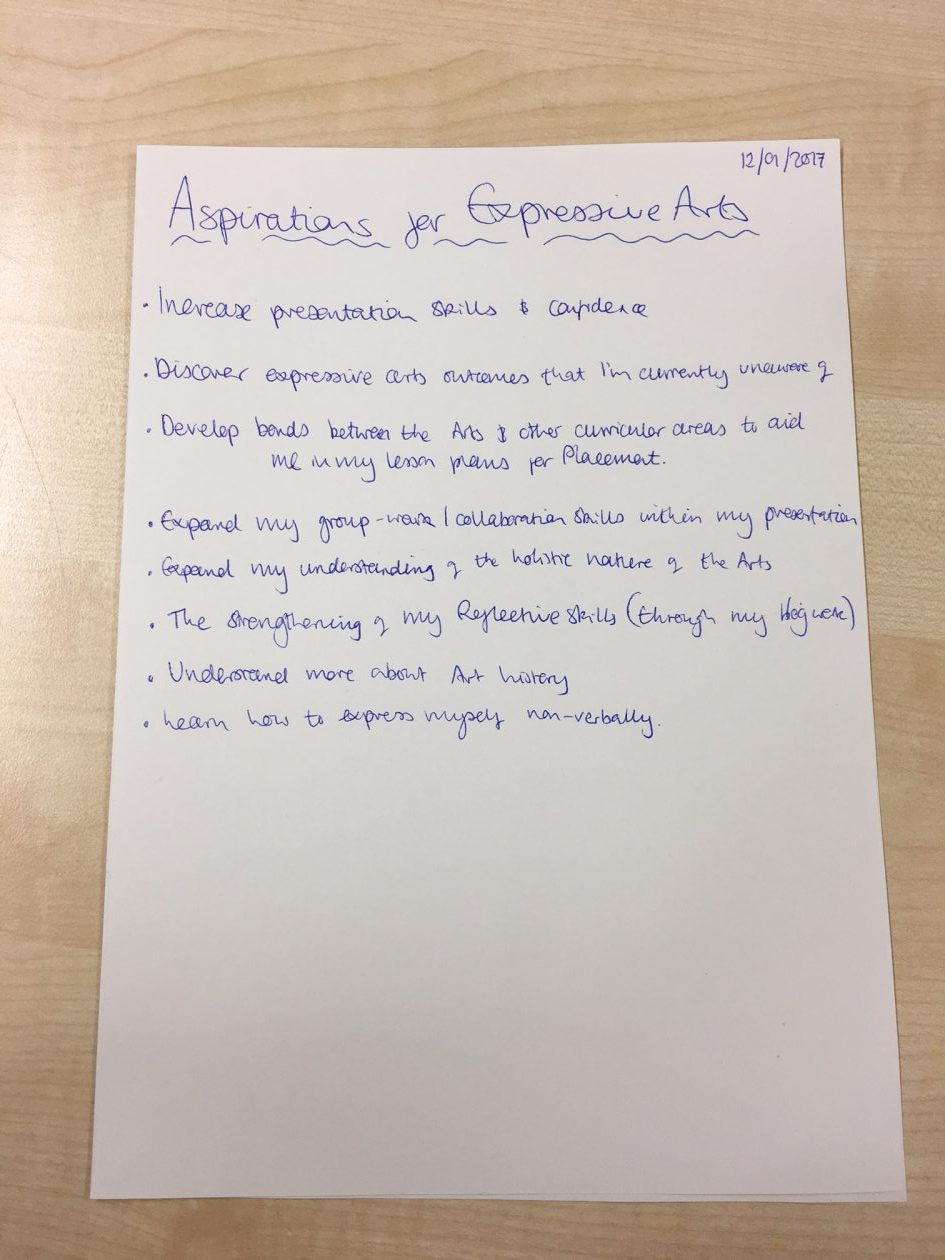 12/01/2017
Aspirations for Expressive Arts
• Increase presentation skills & confidence
• Discover expressive arts outcomes that I'm currently unaware of
• Develop bonds between the Arts & other curricular areas to aid
me in my lesson plans for Placement.
• Expand my group-work / collaboration skills within my presentation
• Expand my understanding of the holistic nature of the Arts
• The strengthening of my Reflective skills (through my blog work)
• Understand more about Art history
• Learn how to express myself non-verbally.